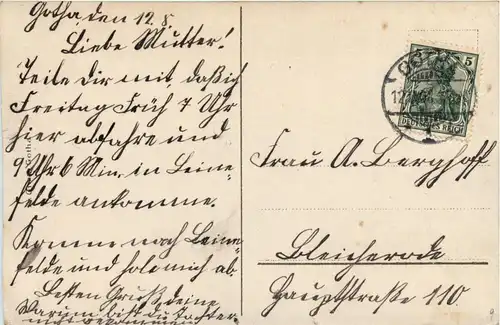 Gotha, den 12. 8.
Liebe Mutter!
Teile Dir mit, daß ich
Freitag Früh 7 Uhr
hier abfahre und
9 Uhr 6 Min. in Leine-
felde ankomme.
Komme nach Leine-
felde und hole mich ab
Besten Gruß deine
Tochter
Warum bist du
5
DEUTSCHES REICH
Frau A. Berghoff
Bleicherode
Hauptstraße 110.